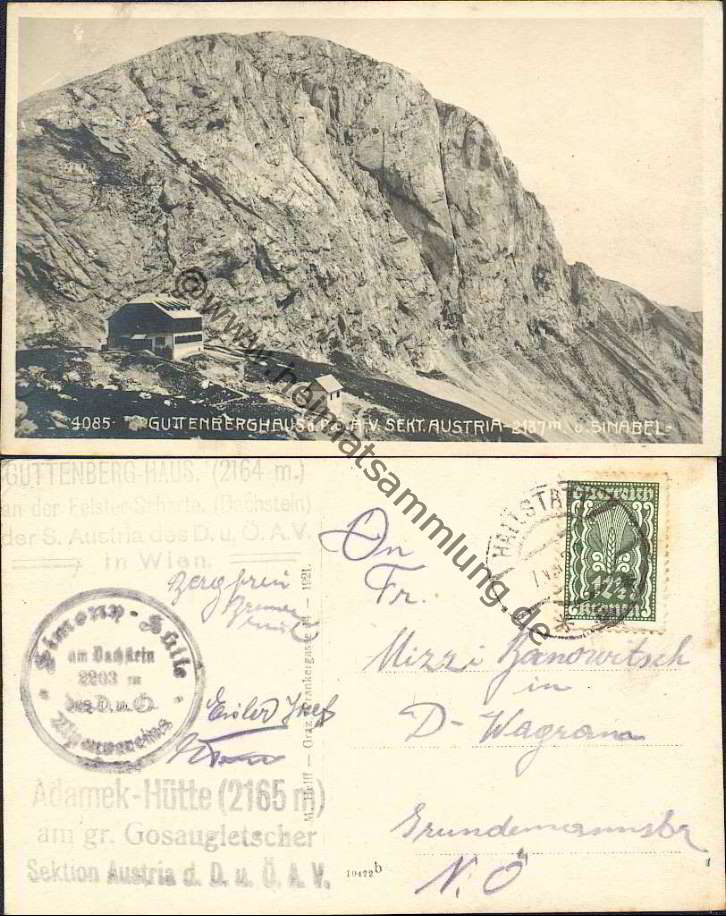 4085 GUTTENBERGHAUS d. D. u. Ö. A. V. SEKT. AUSTRIA 2137 m. u. SINABEL
@www.heimatsammlung.de
GUTTENBERG-HAUS. (2164 m.)
an der Feister-Scharte. (Dachstein)
der S. Austria des D. u. Ö. A. V.
in Wien.
Bergfrei
Simony-Hütte
am Dachstein
2203 m
des D. u. Ö.
Alpenvereins
Josef
Adamek-Hütte (2165 m)
am gr. Gosaugletscher
Sektion Austria d. D. u. Ö. A. V.
Graz 1921.
10422b
HALLSTATT
12½
Kronen
An
Fr.
Mizzi Zanowitsch
in
D-Wagram
Grundemannstr
N. Ö